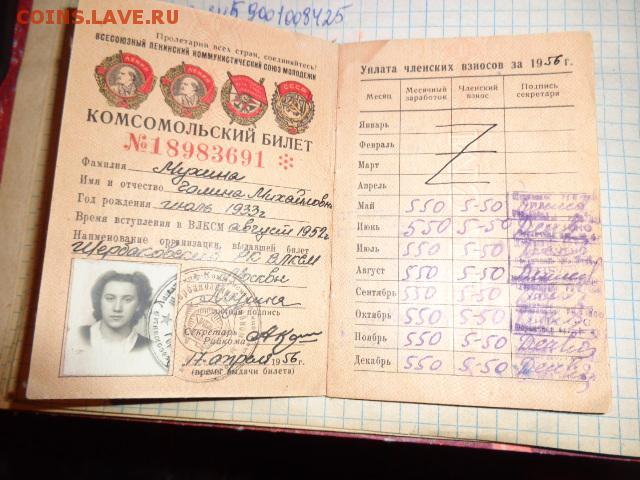 COINS.LAVE.RU
59001008425
Пролетарии всех стран, соединяйтесь!
ВСЕСОЮЗНЫЙ ЛЕНИНСКИЙ КОММУНИСТИЧЕСКИЙ СОЮЗ МОЛОДЕЖИ
ЛЕНИН
ЛЕНИН
СССР
КОМСОМОЛЬСКИЙ БИЛЕТ
№18983691
Фамилия Мухина
Имя и отчество Галина Михайловна
Год рождения июль 1933г
Время вступления в ВЛКСМ август 1952г
Наименование организации, выдавшей билет
Щербаковский РК ВЛКСМ
Москвы
Мухина
Личная подпись
Секретарь
Райкома
17 апреля 1956г.
(время выдачи билета)
Уплата членских взносов за 1956г.
Месяц Месячный заработок Членский взнос Подпись секретаря
Январь
Февраль
Март
Апрель
Май 550 5-50
Июнь 550 5-50
Июль 550 5-50
Август 550 5-50
Сентябрь 550 5-50
Октябрь 550 5-50
Ноябрь 550 5-50
Декабрь 550 5-50